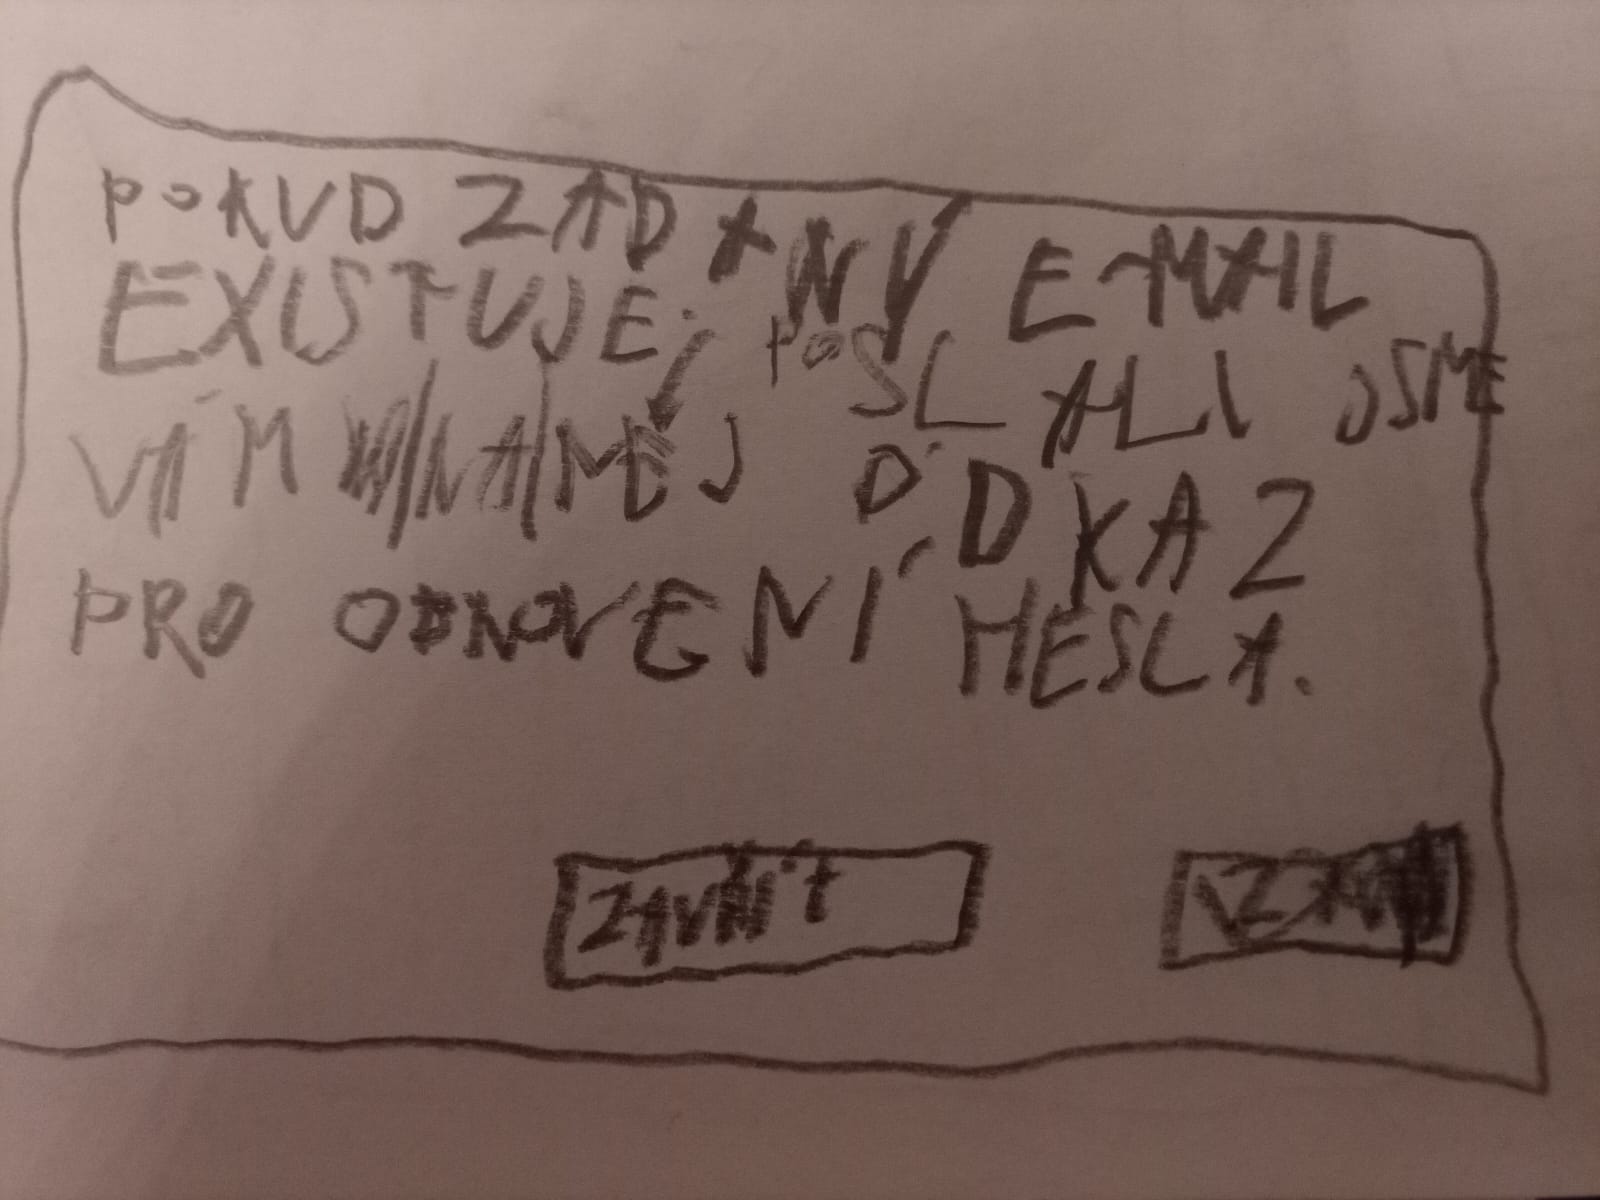 POKUD ZADANÝ E-MAIL
EXISTUJE, POSLALI JSME
VÁM NA MĚJ ODKAZ
PRO OBNOVENÍ HESLA.
ZAVŘÍT